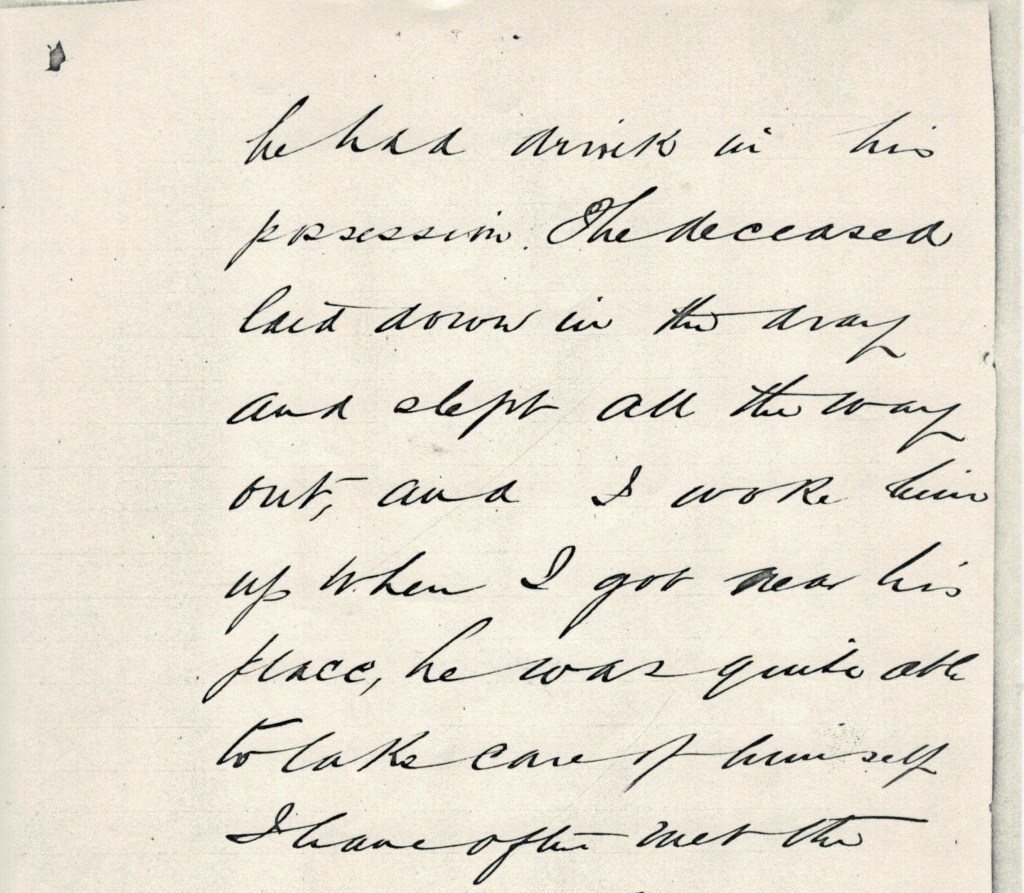 he had drink in his
possession. The deceased
laid down in the dray
and slept all the way
out, and I woke him
up when I got near his
place, he was quite able
to take care of himself
I have often met the